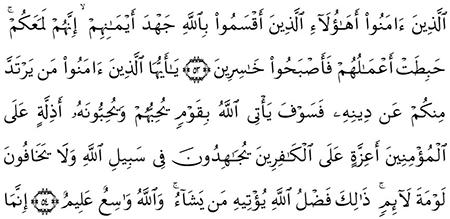 ٱلَّذِينَ ءَامَنُوٓا۟ أَهَٰٓؤُلَآءِ ٱلَّذِينَ أَقْسَمُوا۟ بِٱللَّهِ جَهْدَ أَيْمَٰنِهِمْ ۙ إِنَّهُمْ لَمَعَكُمْ ۚ
حَبِطَتْ أَعْمَٰلُهُمْ فَأَصْبَحُوا۟ خَٰسِرِينَ ۝٥٣ يَٰٓأَيُّهَا ٱلَّذِينَ ءَامَنُوا۟ مَن يَرْتَدَّ
مِنكُمْ عَن دِينِهِۦ فَسَوْفَ يَأْتِى ٱللَّهُ بِقَوْمٍ يُحِبُّهُمْ وَيُحِبُّونَهُۥٓ أَذِلَّةٍ عَلَى
ٱلْمُؤْمِنِينَ أَعِزَّةٍ عَلَى ٱلْكَٰفِرِينَ يُجَٰهِدُونَ فِى سَبِيلِ ٱللَّهِ وَلَا يَخَافُونَ
لَوْمَةَ لَآئِمٍ ۚ ذَٰلِكَ فَضْلُ ٱللَّهِ يُؤْتِيهِ مَن يَشَآءُ ۚ وَٱللَّهُ وَٰسِعٌ عَلِيمٌ ۝٥٤ إِنَّمَا